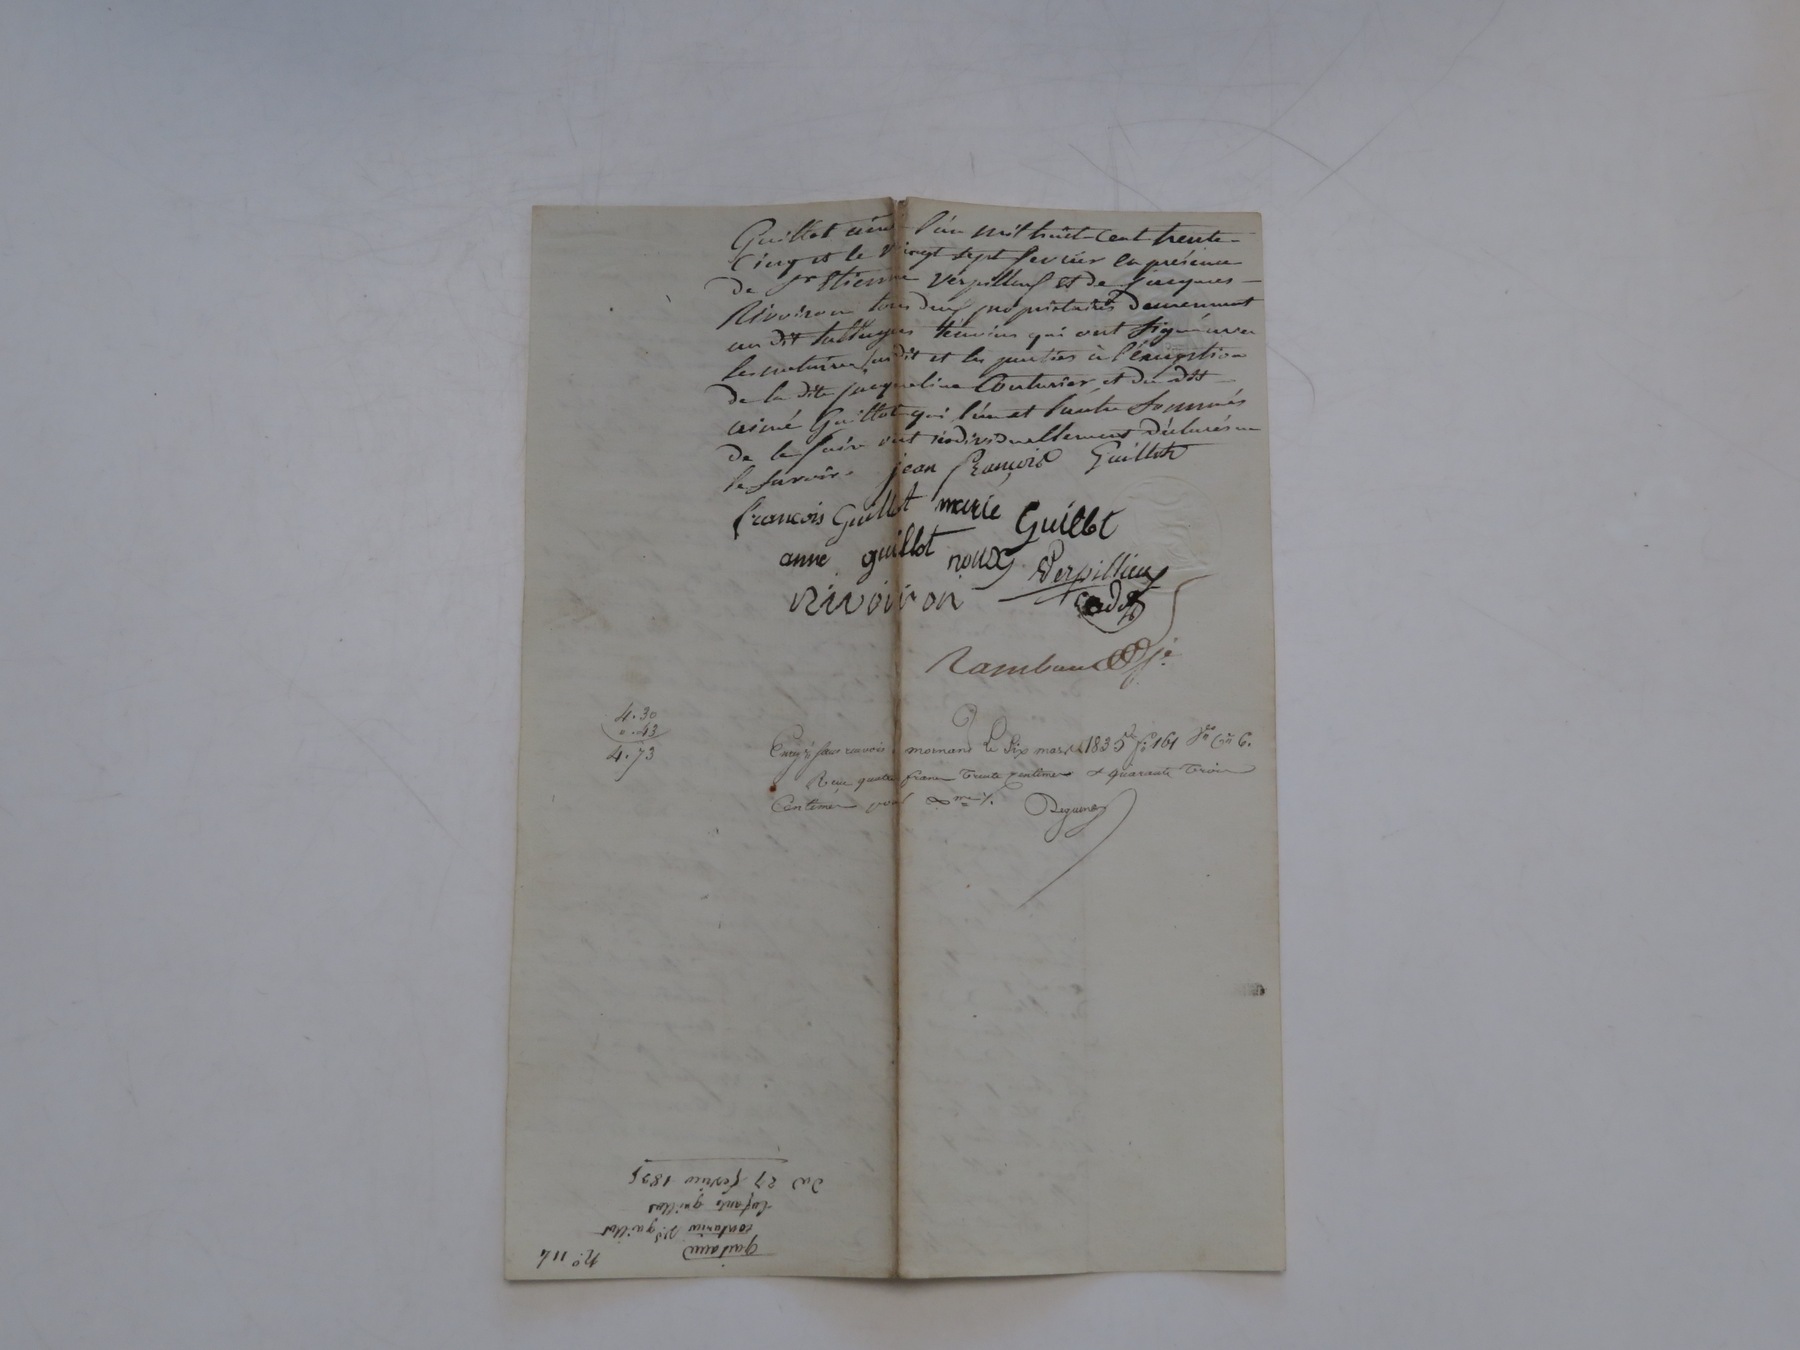 Guillot aîné l'an mil huit cent trente
Cinq et le vingt sept fevrier en présence
de Sr Etienne Verpilleux et de Jacques
Rivoiron tous deux propriétaires demeurant
au dit témoins qui ont signé avec
les notaires susdit et les parties à l'exception
de la dite jacqueline Couturier et du dit
aimé Guillot qui l'un et l'autre sommés
de le faire ont individuellement déclarés ne
le savoir. jean françois Guillot
francois Guillot marie Guillot
anne guillot roux Verpillieux
Rivoiron
Rambaud
4.30
0.43
4.73
Enregé sans renvois à mornant le six mars 1835 fo 161 Vo Cen 6.
Reçu quatre francs trente centimes & quarante trois
Centimes pour Dme %.
Du 27 février 1835
Enfants guillot
couturier Ve guillot
quittance
No. 114